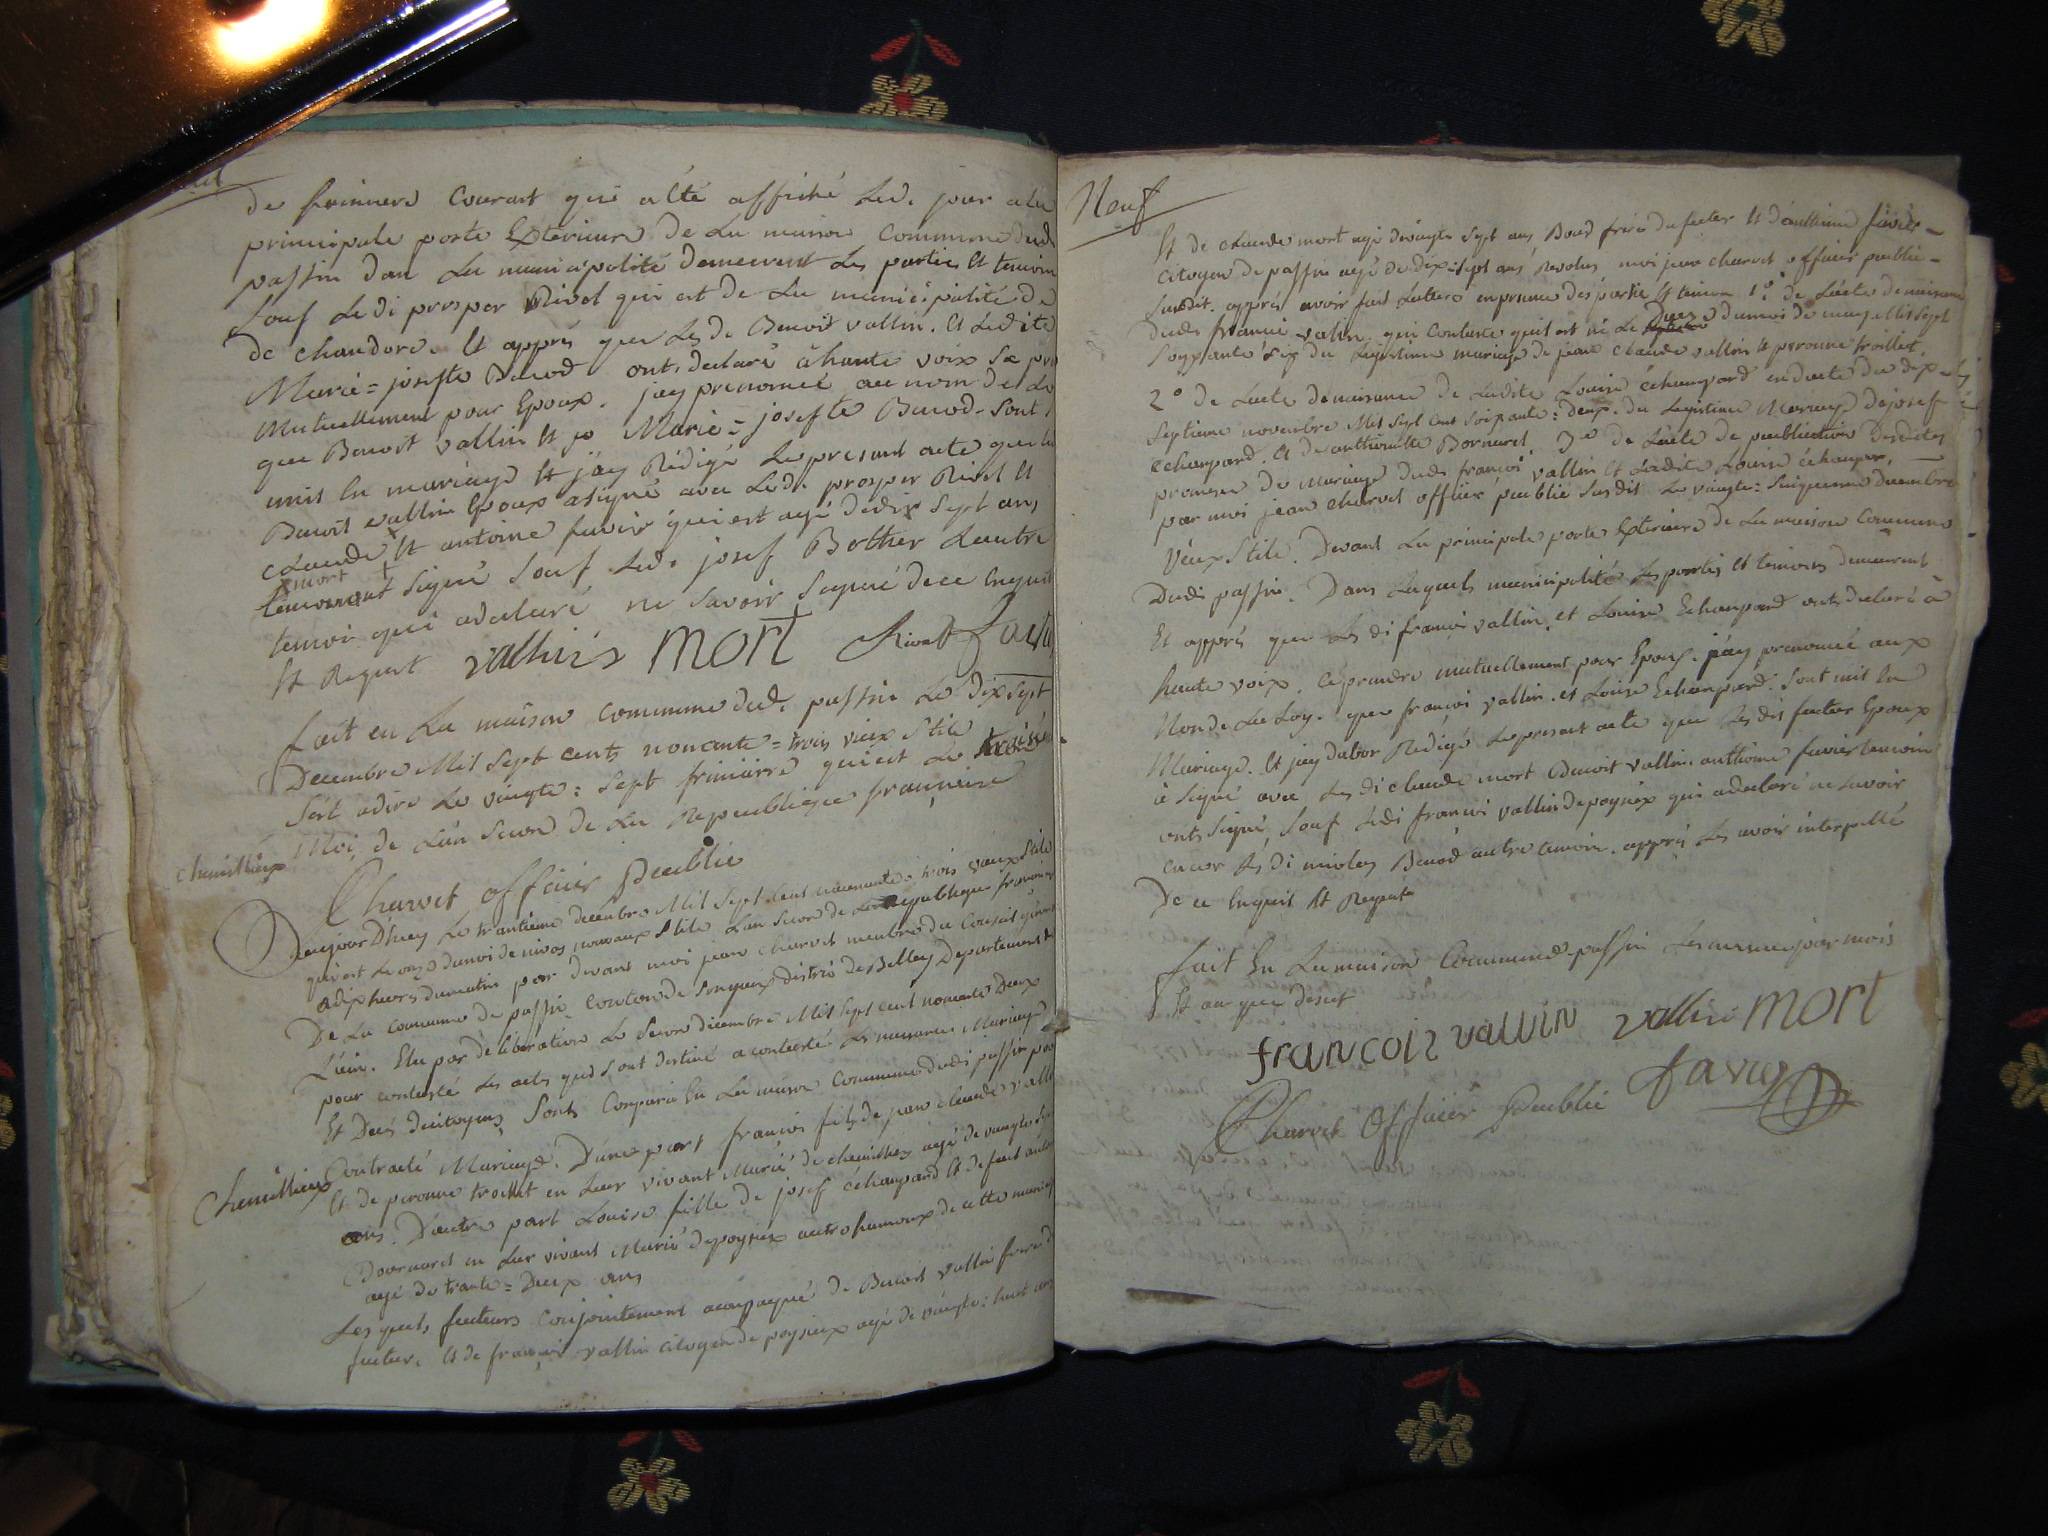 de frimere Courant qui a été affiché Led. jour a la
principale porte Extérieure de La maison Commune dud.
passin dan La municipalité demeurent Les parties et temoin
Souf Ledi prosper Rivol qui est de La municipalité de
de chandore. Et apprés que Les de Benoit vallin. Et Ledite
Marie=josefte Benod onts declaré à haute voix Se pra
Mutuellement pour Epoux. jay prenomcé au nom de La
que Benoit vallin Et jo Marie=josefte Benod. Sont
unis En mariage Et j'ay Rédigé Le present acte que Le
Benoit vallin Epoux a signé avec Led. prosper Rivol Et
Claude Et antoine favier qui est agé de dix Sept ans
mort
temoint Signé Souf Led. josef Bother Lautre
temoir qui a declaré ne Savoir Signé de ce Enquit
Et Requit vallins MORT Rivol favi
fait en La maison commune dud. passin Le Dix Sept
Decembre Mil Sept cents nonente=trois vieux Stile
Sést adire Le vingte: Sept frimairre qui est Le troisie
Moi de L'an Second de La Republique françoise
Chemillieux
Charvet officier Peublic
Aeujour D'huy Le trantieme decembre Mil Sept Cent nonente trois vieux Stile
qui est Le onze du moi de nivos nouvaux Stile L'an Secon de La Republique francoise
a dix heurs du matin par devant moi jean charvet menbre du Conseil géneral
De La Commune de passin Conton de Songieux District de Belley Departement de
L'ein. Elu par déliberation Le Secon dicembre Mil Sept cent nonente Deux
pour contesté Les acts qui S'ont destiné a contesté Les naisances Mariage
Et Decés decitoyens Sonts Comparu En La maison Commune dudi passin pour
Chemillieux Contracté Mariage. D'une part francois fils de jean claude valli
Et de peronne troillet en Leur vivant Marié de chemillieux agé de vingte Sept
ans. D'autre part Louise fille de josef échampard Et de feut antoi
Bornaret en Leur vivant Marié de poysieux autre hameaux de cette munici
agé de trante=Deux ans
Les quels futeurs conjointement acompagné de Benoit vallin frere du
futeur. Et de françois vallin citoyen de poysieux agé de vingte: huit ans
Neuf
Et de claude mort agé de vingte Sept ans, Beau frére du futer Et d'anthoine favier
Citoyen de passin agé de dix=Sept ans Revolus, moi jean charvet officier peublic
Susdit. apprés avoir fait Lecture en presence des partie Et temoin 1.° de L'acte de naisance
dudi françoi vallin qui Conteste qu'il est né Le Deuze dumoi de may Mil Sept
Soyxante six du Legistime mariage de jean claude vallin Et peronne troillet.
2° de Lacte de naisance de Ladite Louise échampard endaete du dix
Septieme novembre Mil Sept Cent Soixante: deux. du Legistime Mariage de josef
échampard. Et de anthoinette Bornaret. 3° de L'acte de peublication Desdites
promesse de Mariage dudi françoi vallin Et Ladite Louise échampar.
par moi jean charvet officier peublic Susdit Le vingte: Sinqueme decembre
Vieux Stile. Devant La principale porte Exterieure de La maison Commune
Dudi passin. Dans Laquels municipalité Les parties Et temoins demeurent
Et apprés que Les di françoi vallin et Louise Echampard onts declaré à
haute voix. Ce prandre mutuellement pour Epoux. jay prenomcé aux
Nom de La Loy. que françoi vallin. et Louise Echampard. Sont unit En
Mariage. Et jay dabor Rédigé Le present acte que Les dis futur Epoux
à Signé avec Les di claude mort Benoit vallin. anthoine favier temoin
onts signé, Souf Lédi françoi vallin de poysiex qui a declaré ne savoir
encor Lés di nicolas Benod autre temoin. apprés Les avoir interpellé
De ce Enquit Et Requit
fait En La maison Commune passin Les memes jour mois
Et an que desut
francois vallin vallin MORT
Charvet Officier Peublic favier